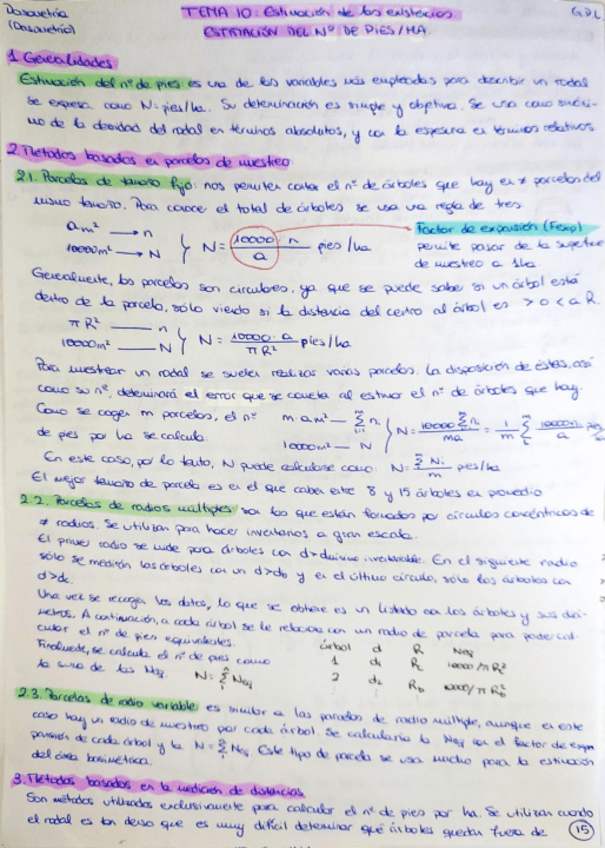 Dasometría TEMA 10: Estimación de las existencias. G.D.L
(Dasometría) ESTIMACIÓN DEL Nº DE PIES/HA.
1. Generalidades
Estimación del nº de pies es una de las variables más empleadas para describir un rodal
se expresa como N = pies/ha. Su determinación es simple y objetiva. Se usa como sinóni-
mo de la densidad del rodal en términos absolutos, y con la espesura en términos relativos
2. Métodos basados en parcelas de muestreo
2.1. Parcelas de tamaño fijo: nos permiten contar el nº de árboles que hay en ≠ parcelas del
mismo tamaño. Para conocer el total de árboles se usa una regla de tres
a m² → n
10000m² → N } N = 10000 · n / a pies/ha
Factor de expansión (Fexp)
permite pasar de la superficie
de muestreo a 1ha.
Generalmente, las parcelas son circulares, ya que se puede saber si un árbol está
dentro de la parcela, sólo viendo si la distancia del centro al árbol es > o < a R.
π R² — n
10000m² — N } N = 10000 · a / π R² pies/ha
Para muestrear un rodal se suelen realizar varias parcelas. La disposición de éstas, así
como su nº, determinará el error que se cometa al estimar el nº de árboles que hay.
Como se cogen m parcelas, el nº
de pies por ha se calcula.
m · a m² — Σ ni
10000m² — N } N = 10000 Σ ni / ma = 1/m Σ 10000 ni / a pies/
En este caso, por lo tanto, N puede calcularse como: N = Σ Ni / m pies/ha
El mejor tamaño de parcela es en el que caben entre 8 y 15 árboles en promedio
2.2. Parcelas de radios múltiples: son las que están formadas por círculos concéntricos de
≠ radios. Se utilizan para hacer inventarios a gran escala.
El primer radio se mide para árboles con d > dmínimo inventariable. En el siguiente radio
sólo se medirán los árboles con un d > db y en el último círculo, sólo los árboles con
d > dc.
Una vez se recogen los datos, lo que se obtiene es un listado con los árboles y sus diá-
metros. A continuación, a cada árbol se le relaciona con un radio de parcela para poder cal-
cular el nº de pies equivalentes.
Finalmente, se calcula el nº de pies como
la suma de los Neq. N = Σ Neq
árbol d R Neq
1 d1 Rc 10000/π Rc²
2 d2 Rb 10000/π Rb²
2.3. Parcelas de radio variable: es similar a las parcelas de radio múltiple, aunque en este
caso hay un radio de muestreo por cada árbol. Se calcularía la Neq con el factor de expan
pansión de cada árbol y la N = Σ Neq. Este tipo de parcela se usa mucho para la estimación
del área basimétrica.
3. Métodos basados en la medición de distancias
Son métodos utilizados exclusivamente para calcular el nº de pies por ha. Se utilizan cuando
el rodal es tan denso que es muy difícil determinar qué árboles quedan fuera de 15